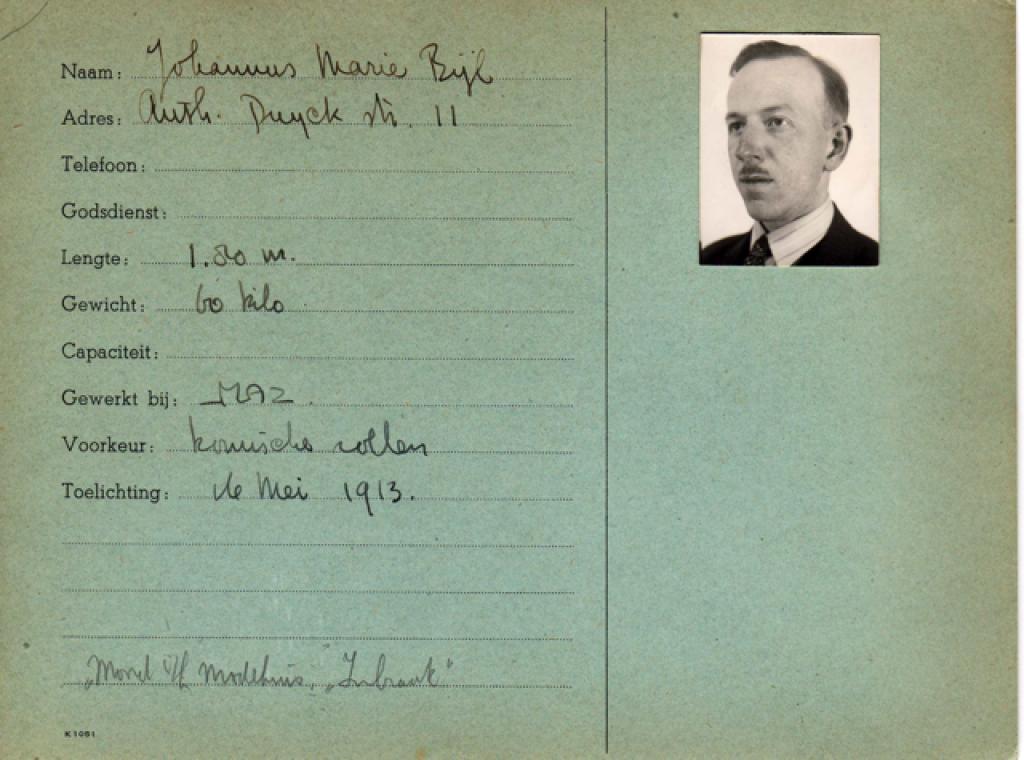 Naam: Johannus Marie Bijl
Adres: Anth. Duyck str. 11
Telefoon:
Godsdienst:
Lengte: 1.80 m.
Gewicht: 60 kilo
Capaciteit:
Gewerkt bij:
Voorkeur: komische rollen
Toelichting: 16 Mei 1913.
„Moord i/h Modehuis, „Inbraak"
K1051